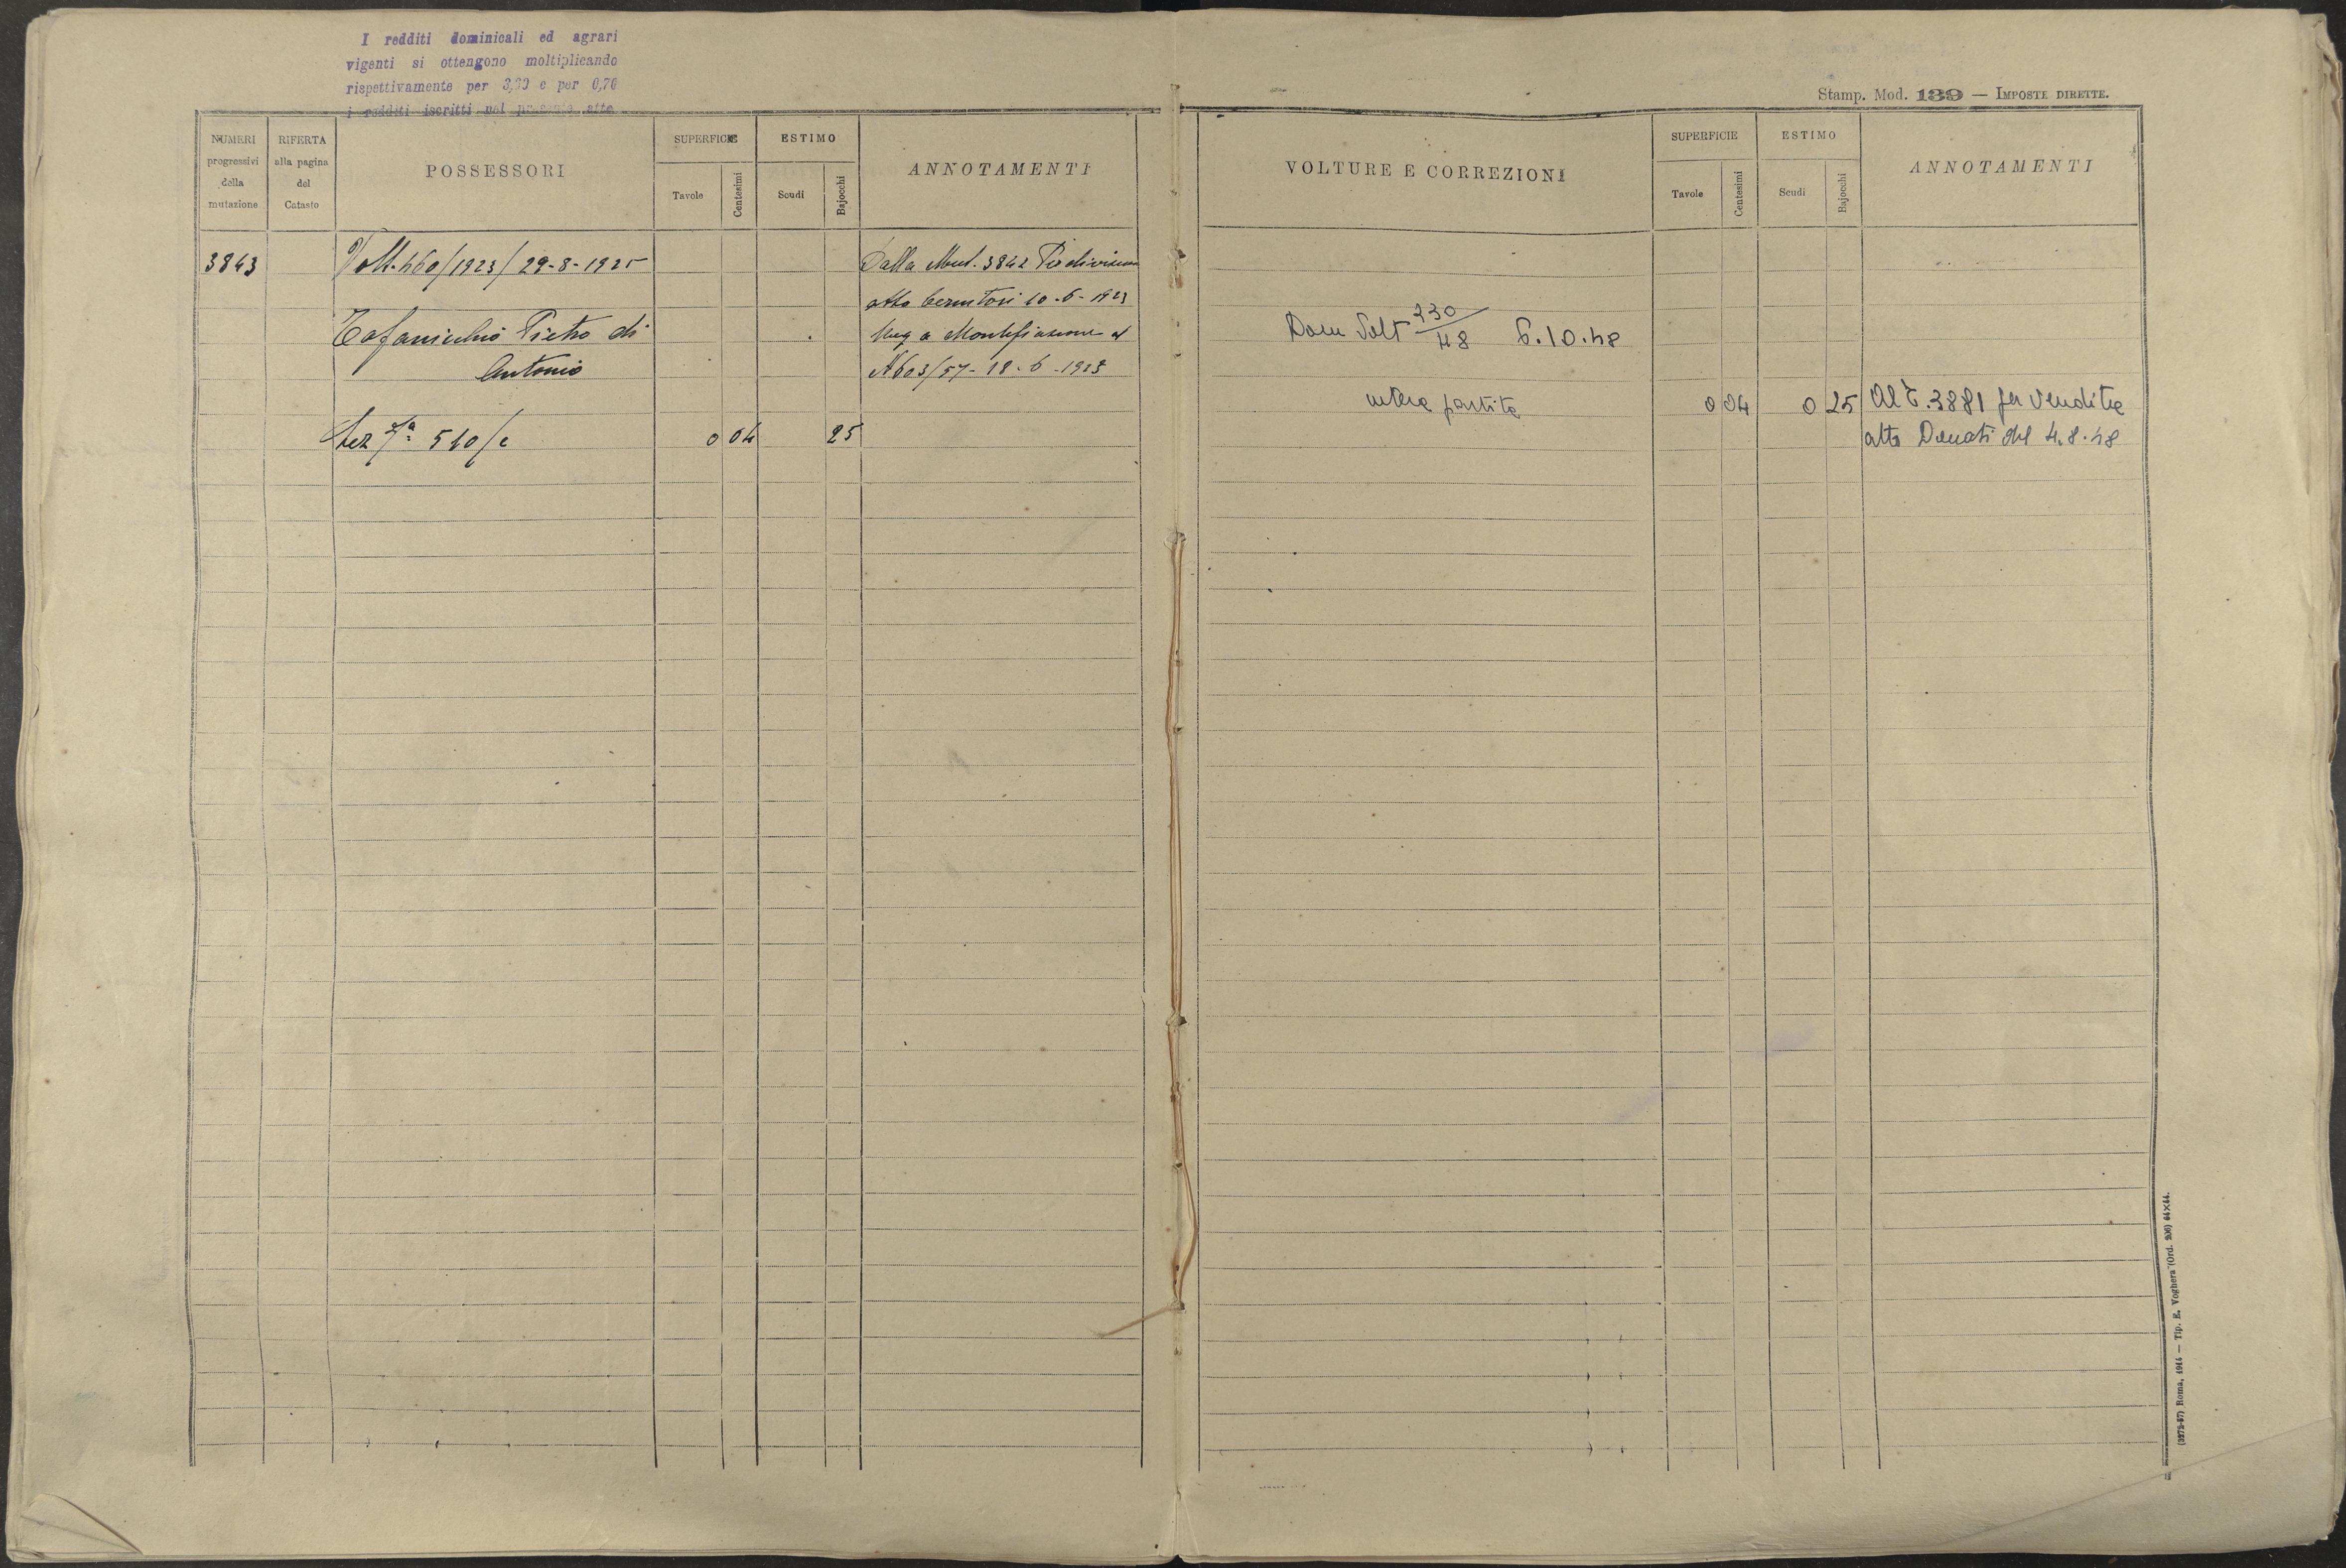 I redditi dominicali ed agrari
vigenti si ottengono moltiplicando
rispettivamente per 3,30 e per 0,70
i redditi iscritti nel presente atto
NUMERI progressivi della mutazione
RIFERTA alla pagina del Catasto
POSSESSORI
SUPERFICIE
Tavole
Centesimi
ESTIMO
Scudi
Bajocchi
ANNOTAMENTI
3843
Volt. 460/1923/29-8-1925
Dalla Mut. 3842 Per divisione
atto 10-6-1923
Tofanicchio Pietro di
Reg a Montefiascone al
Antonio
N 603/57-18-6-1923
Sez 7a 510/c
0 04
25
Stamp. Mod. 139 — IMPOSTE DIRETTE.
VOLTURE E CORREZIONI
SUPERFICIE
Tavole
Centesimi
ESTIMO
Scudi
Bajocchi
ANNOTAMENTI
Dom Volt 230/48 6.10.48
intera partita
0 04
0 25
Al C. 3881 per vendita
atto Donati del 4.8.48
(3272-57) Roma, 1914 — Tip. E. Voghera (Ord. 206) 64×44.